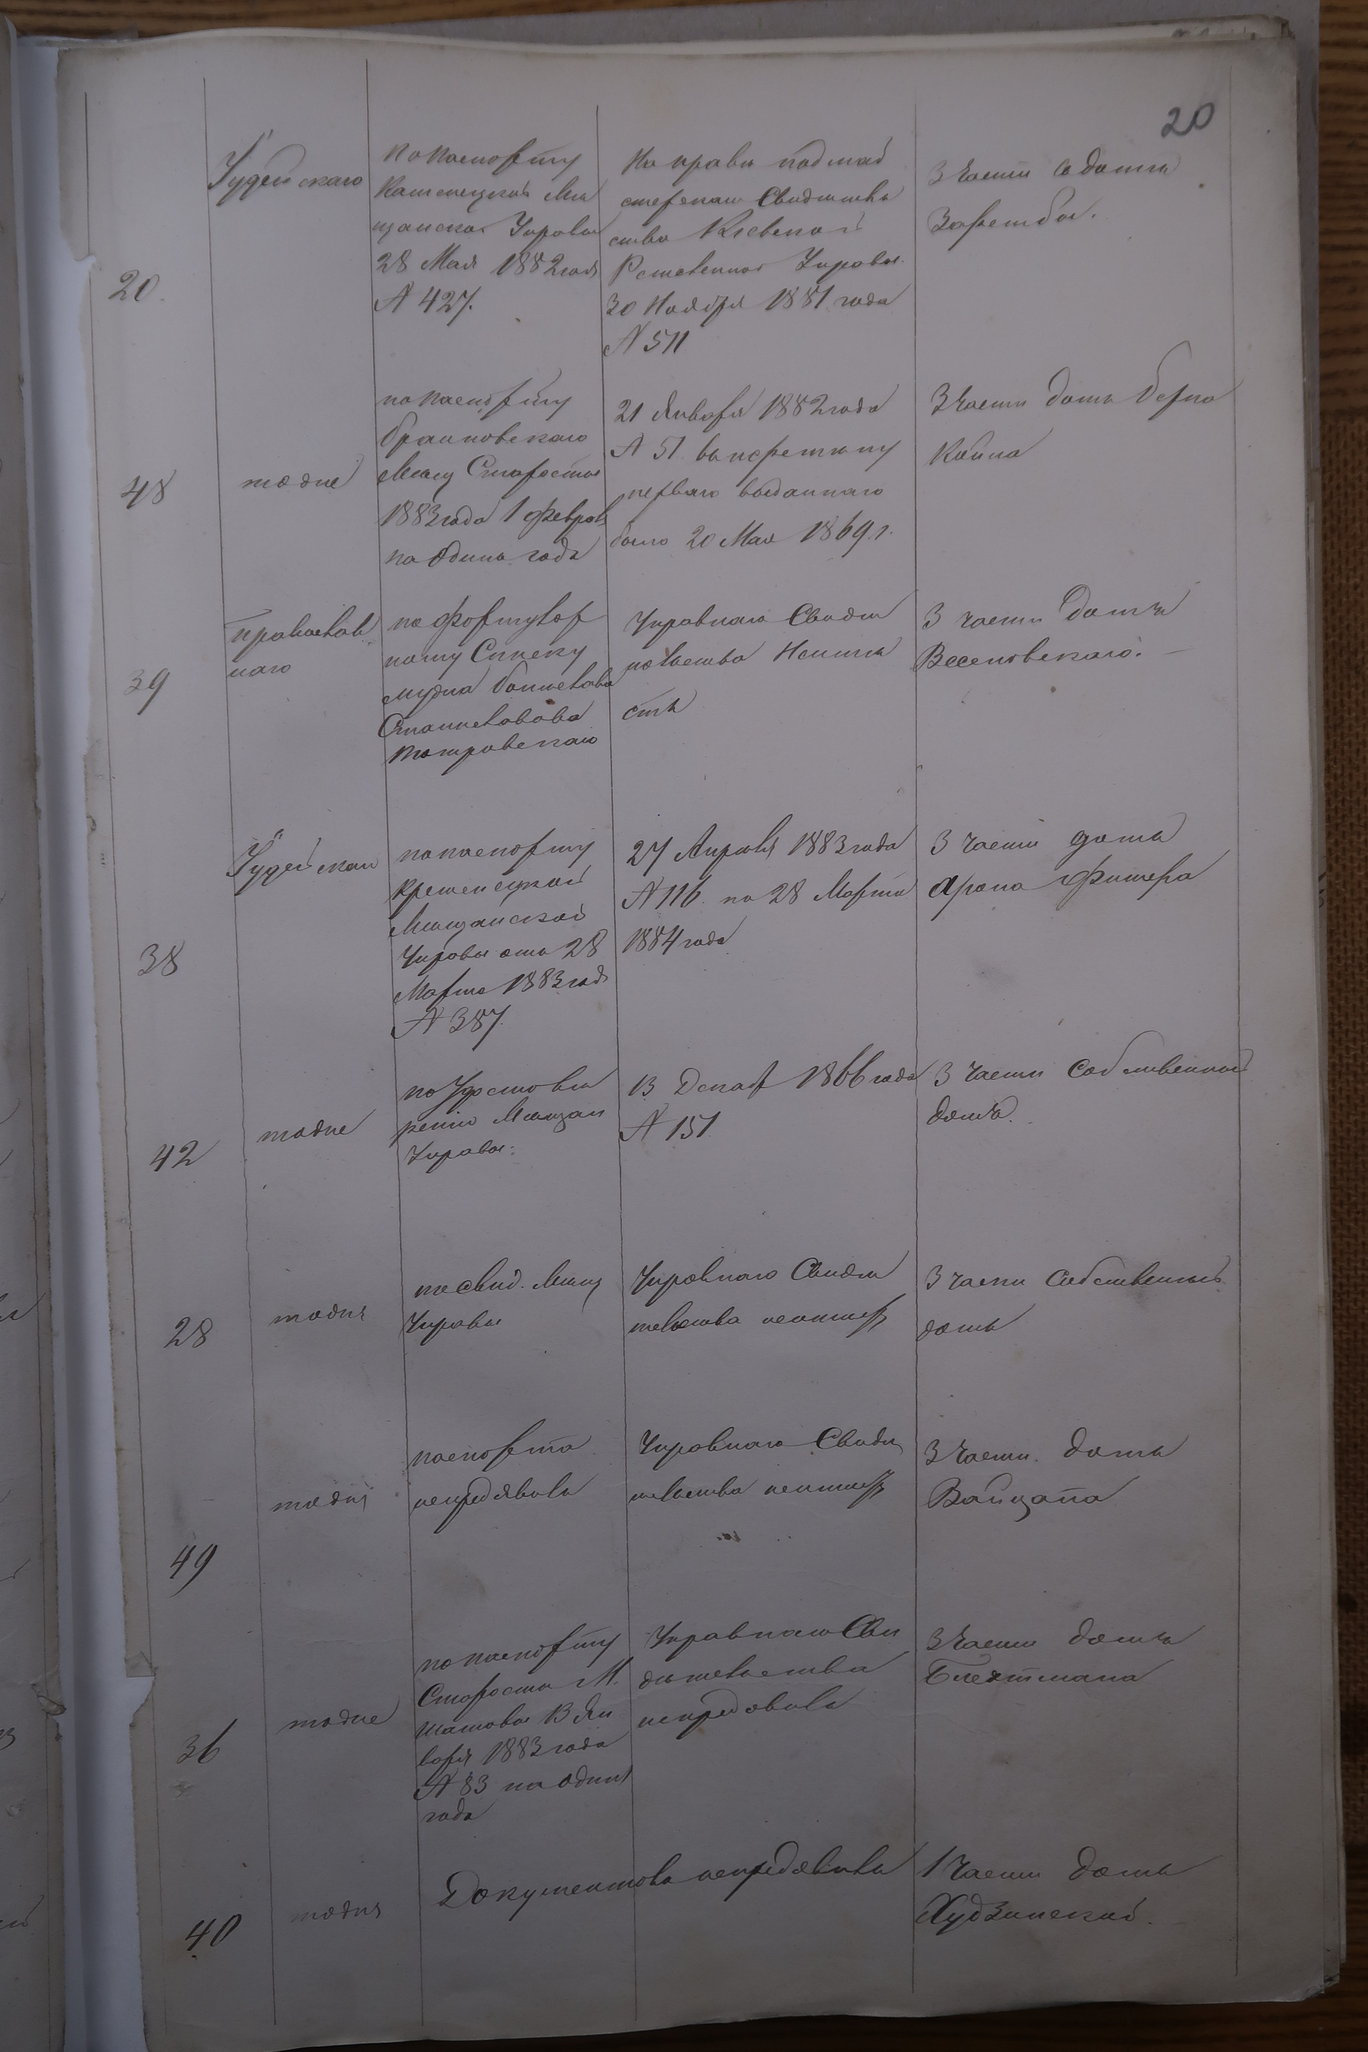 20
20.
Іудейскаго
по паспорту
Каменецкой Мѣ
щанской Управы
28 Мая 1882 года
№ 427.
На право подмас
Свидѣтель
ства Кіевской
Ремесленной Управы
30 Ноября 1881 года
№ 511
3 части в домѣ
Зарембы.
48
тоже
по паспорту
Мѣщ Старосты
1883 года 1 Февраля
на один годъ
21 Января 1882 года
№ 51
первого выданнаго
было 20 Мая 1869 г.
3 части домъ Берка
39
Православ
наго
по
ному Списку
3 части домъ
Весоловскаго.
Управнаго Свидѣ
тельства Неимѣ
етъ
38
Іудейскаго
по паспорту
Кременецкой
Мѣщанской
Управы отъ 28
Марта 1883 года
№ 387.
27 Апрѣля 1883 года
№ 116 по 28 Марта
1884 года
3 части домъ
Арона Фишера
42
тоже
по Удостовѣ
ренію Мѣщан
Управы.
13 Декаб 1866 года
№ 151.
3 части Собственный
домъ.
28
тоже
по свид. Мѣщ
Управы
Управнаго Свидѣ
тельства неимѣетъ
3 части Собственный
домъ
49
тоже
паспорта
непредъявилъ
Управнаго Свидѣ
тельства неимѣетъ
3 части домъ
Вайцмана
36
тоже
по паспорту
Старосты М.
13 Ян
варя 1883 года
№ 83 на один
годъ
Управнаго Сви
дѣтельства
непредъявилъ
3 части домъ
40
тоже
Документовъ непредъявилъ
1 части домъ
Худзинской.